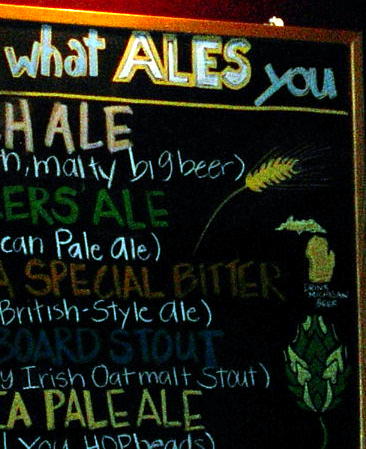 what ALES you
H ALE
n, malty big beer)
ERS ALE
can Pale ale)
A SPECIAL BITTER
British-Style ale)
DRINK
MICHIGAN
BEER
BOARD STOUT
y Irish Oatmalt Stout)
A PALE ALE
l you HOPheads)